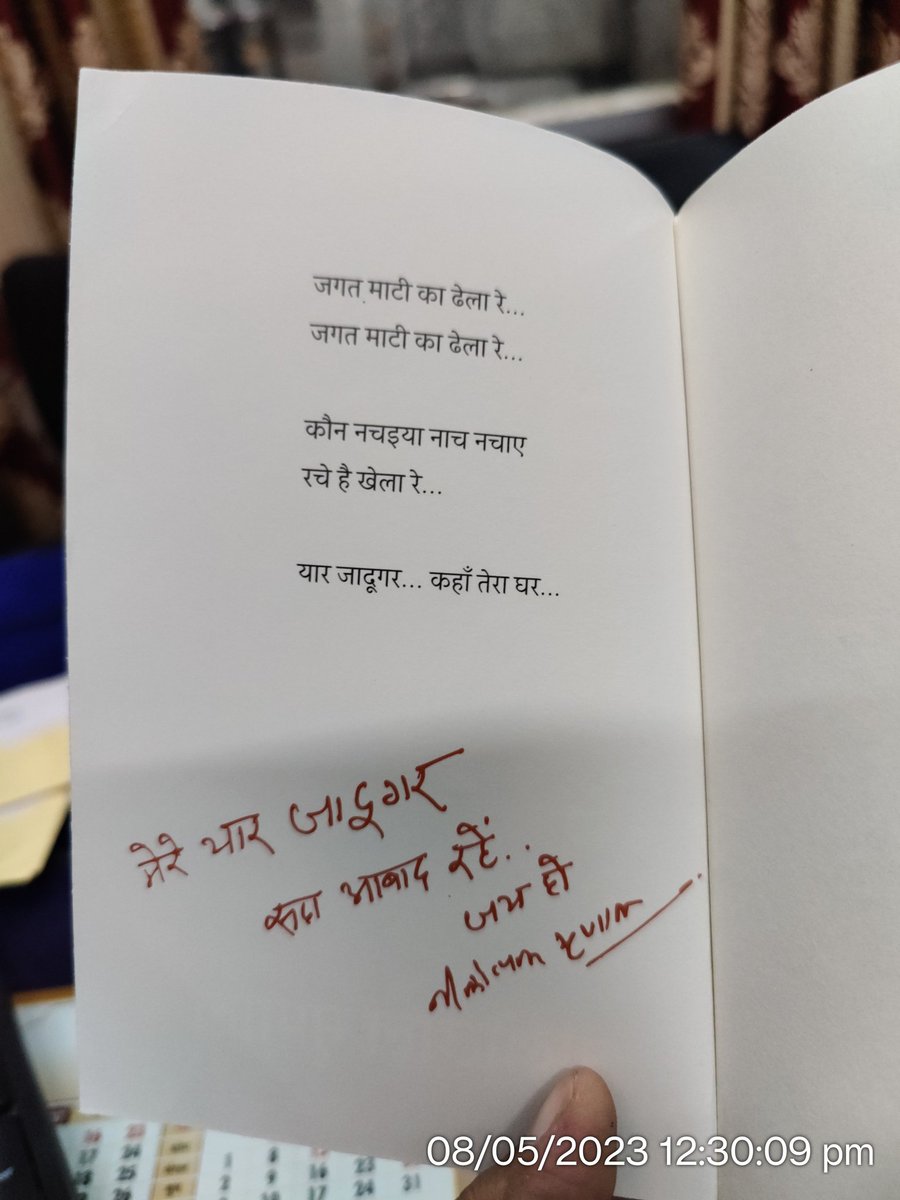 जगत माटी का ढेला रे...
जगत माटी का ढेला रे...
कौन नचइया नाच नचाए
रचे है खेला रे...
यार जादूगर... कहाँ तेरा घर...
मेरे यार जादूगर
सदा आबाद रहें..
जय हो
नीलोत्पल मृणाल
08/05/2023 12:30:09 pm